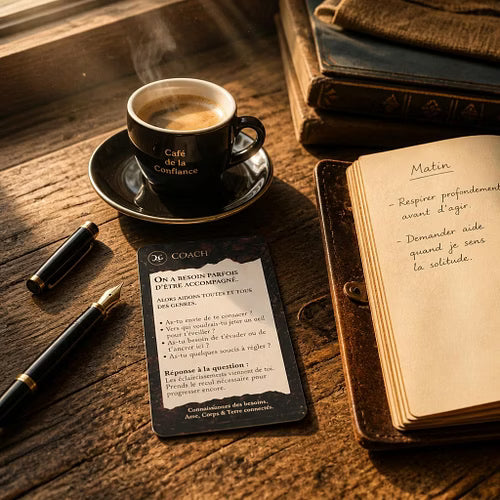 Café
de la
Confiance
COACH
On a besoin parfois
d'être accompagné.
Alors aidons toutes et tous
des genres.
• As-tu envie de te consacer ?
• Vers qui voudrais-tu jeter un œil
pour t'éveiller ?
• As-tu besoin de t'évader ou de
t'ancrer ici ?
• As-tu quelques soucis à régler ?
Réponse à la question :
Les éclaircissements viennent de toi.
Prends le recul nécessaire pour
progresser encore.
Connaissances des besoins,
Ame, Corps & Terre connectés.
Matin
- Respirer profondement
avant d'agir.
- Demander aide
quand je sens
la solitude.